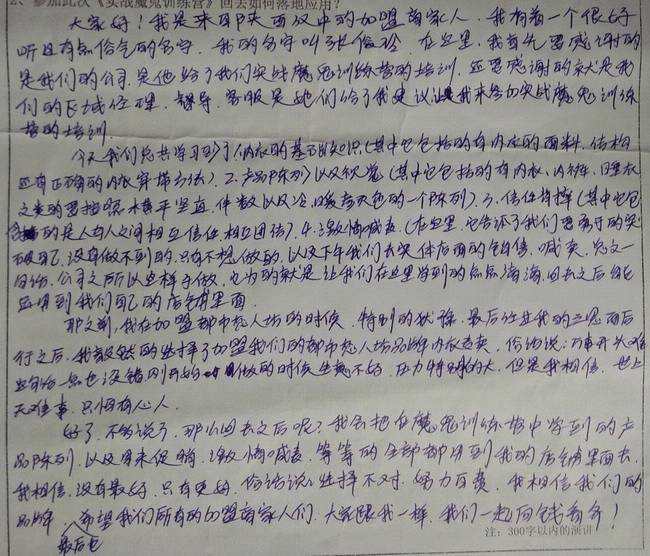 2、参加此次《实战魔鬼训练营》回去如何落地应用?
大家好!我是来自陕西汉中的加盟商家人,我有着一个很好
听且有点俗气的名字,我的名字叫张俊玲,在这里,我首先要感谢的
是我们的公司,是他给了我们实战魔鬼训练营的培训,还要感谢的就是我
们的区域经理,督导,客服是她们给了我建议让我来参加实战魔鬼训练
营的培训.
今天我们总共学习到了1.内衣的基础知识(其中它包括的有内衣的面料,结构
还有正确的内衣穿搭方法)2.产品陈列以及视觉(其中它包括的有内衣,内裤,日睡衣
文类的要挂照水平竖直,件数以及冷暖春天色的一个陈列).3.信任背摔(其中它包
含的是人与人之间相互信任,相互团结).4.激情喊麦,(在这里,它告诉了我们要勇于的突
破自己,没有做不到的,只有不想做的,以及下午我们去实体店面的销售,喊卖,总之一
句话,公司之所以这样子做,也为的就是让我们在这里学到的点点滴滴,回去之后能
应用到我们自己的店铺里面.
那文到,我在加盟都市恋人坊的时候,特别的犹豫,最后经过我的三思而后
行之后,我毅然的选择了加盟我们的都市恋人坊品牌内衣专卖,俗话说:万事开头难
这句话一点也没错刚开始做的时候生意不好,压力特别的大,但是我相信,世上
无难事,只怕有心人.
好了,不多说了,那么回去之后呢?我会把在魔鬼训练营中学到的产
品陈列,以及周末促销,激情喊麦,等等的全部都用到我的店铺里面去,
我相信,没有最好,只有更好,俗话说:选择不对,努力白费,我相信我们的
品牌,最后也希望我们所有的加盟商家人们,大家跟我一样,我们一起向钱看齐!
注:300字以内的演讲